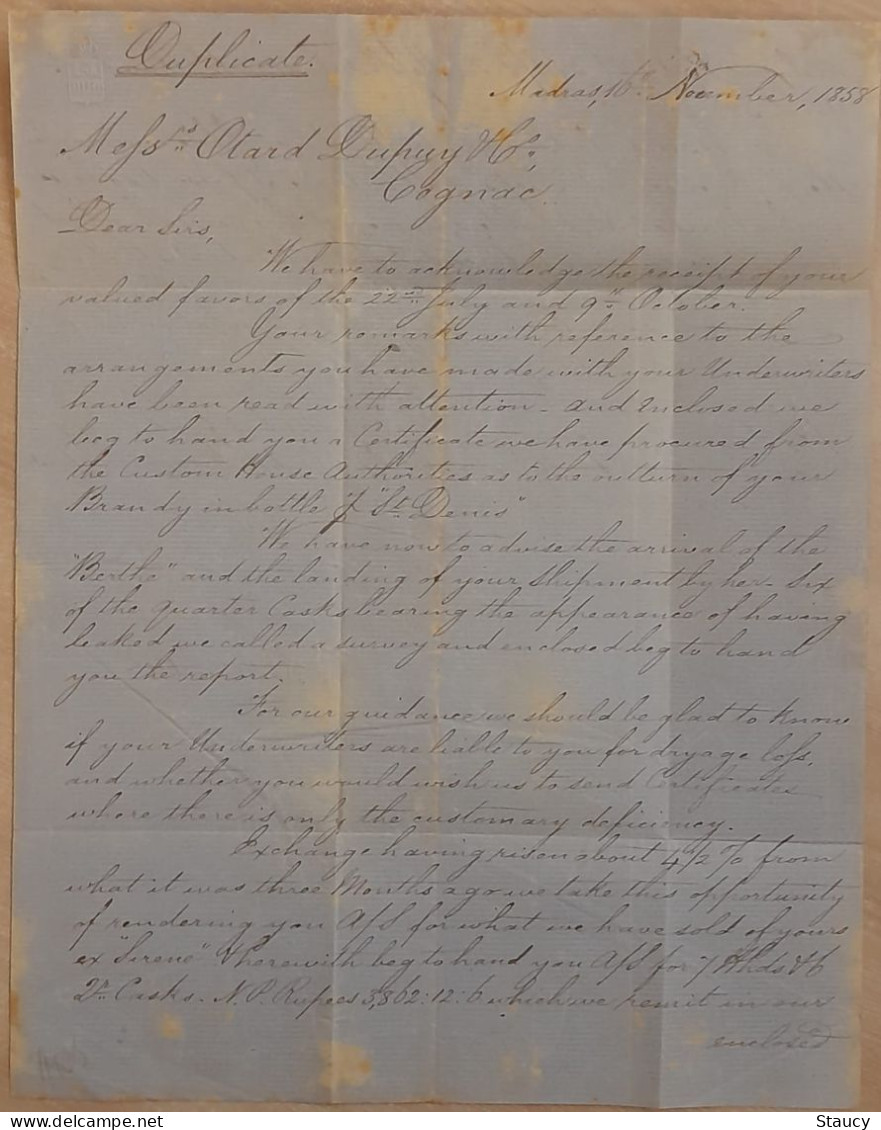 Duplicate.
Madras, 16th November, 1858
Messrs Otard Dupuy & Co,
Cognac.
Dear Sirs,
We have to acknowledge the receipt of your
valued favors of the 22nd July and 9th October.
Your remarks with reference to the
arrangements you have made with your Underwriters
have been read with attention - and Enclosed we
beg to hand you a Certificate we have procured from
the Custom House Authorities as to the outturn of your
Brandy in bottle "St. Denis"
We have now to advise the arrival of the
"Berthe" and the landing of your Shipment by her - Six
of the quarter Casks bearing the appearance of having
leaked we called a survey and enclosed beg to hand
you the report.
For our guidance we should be glad to know
if your Underwriters are liable to you for dryage loss,
and whether you would wish us to send Certificates
where there is only the customary deficiency.
Exchange having risen about 4 1/2 % from
what it was three Months ago we take this opportunity
of rendering you A/S for what we have sold of yours
ex "Sirene" & herewith beg to hand you A/S for 7 Hhds & 6
Qr Casks - N. P. Rupees 3,802:12:6 which we remit in our
enclosed
Staucy
delcampe.net